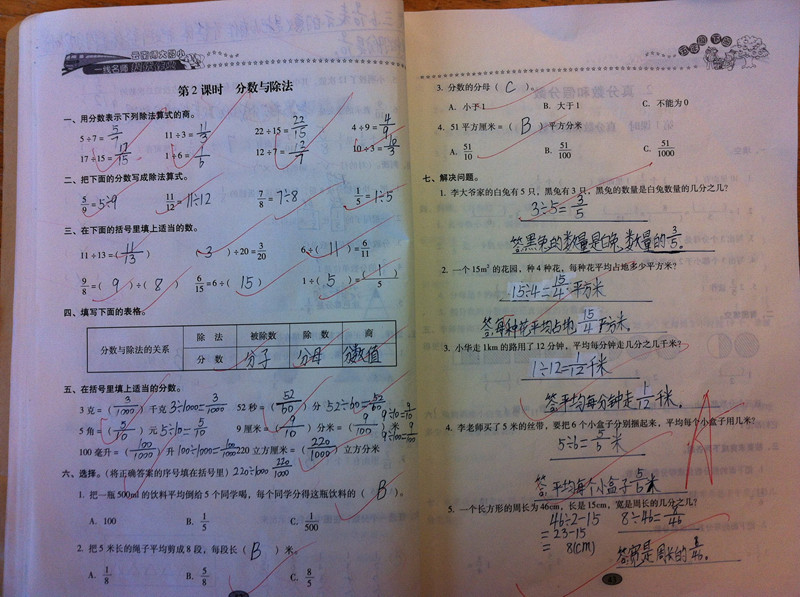 云南师大附小
一线名师
第2课时 分数与除法
一、用分数表示下列除法算式的商。
5÷7=5/7 11÷3=11/3 22÷15=22/15 4÷9=4/9
17÷15=17/15 1÷6=1/6 12÷7=12/7 10÷3=
二、把下面的分数写成除法算式。
5/9=5÷9 11/12=11÷12 7/8=7÷8 1/5=1÷5
三、在下面的括号里填上适当的数。
11÷13=(11/13) (3)÷20=3/20 6÷(11)=6/11
9/8=(9)÷(8) 6/15=6÷(15) 1÷(5)=(1/5)
四、填写下面的表格。
分数与除法的关系 除 法 被除数 除 数 商
分 数 分子 分母 分数值
五、在括号里填上适当的分数。
3克=(3/1000)千克 3÷1000=3/1000 52秒=(52/60)分 52÷60=52/60
5角=(5/10)元 5÷10=5/10 9厘米=(9/10)分米=(9/100)米 9÷10=9/10 9÷100=9/100
100毫升=(100/1000)升 100÷1000=100/1000 220立方厘米=(220/1000)立方分米
六、选择。(将正确答案的序号填在括号里) 220÷1000 220/1000
1. 把一瓶500ml的饮料平均倒给5个同学喝，每个同学分得这瓶饮料的(B)。
A. 100 B. 1/5 C. 1/500
2. 把5米长的绳子平均剪成8段，每段长(B)米。
A. 1/8 B. 5/8 C. 8/5
3. 分数的分母(C)。
A. 小于1 B. 大于1 C. 不能为0
4. 51平方厘米=(B)平方分米
A. 51/10 B. 51/100 C. 51/1000
七、解决问题。
1. 李大爷家的白兔有5只，黑兔有3只，黑兔的数量是白兔数量的几分之几?
3÷5=3/5
答:黑兔的数量是白兔数量的3/5。
2. 一个15m²的花园，种4种花，每种花平均占地多少平方米?
15÷4=15/4平方米
答:每种花平均占地15/4平方米。
3. 小华走1km的路用了12分钟，平均每分钟走几分之几千米?
1÷12=1/12千米
答:平均每分钟走1/12千米。
4. 李老师买了5米的丝带，要把6个小盒子分别捆起来，平均每个小盒子用几米?
5÷6=5/6米
答:平均每个小盒子5/6米
5. 一个长方形的周长为46cm，长是15cm，宽是周长的几分之几?
46÷2-15 8÷46=8/46
=23-15
= 8(cm) 答:宽是周长的8/46。